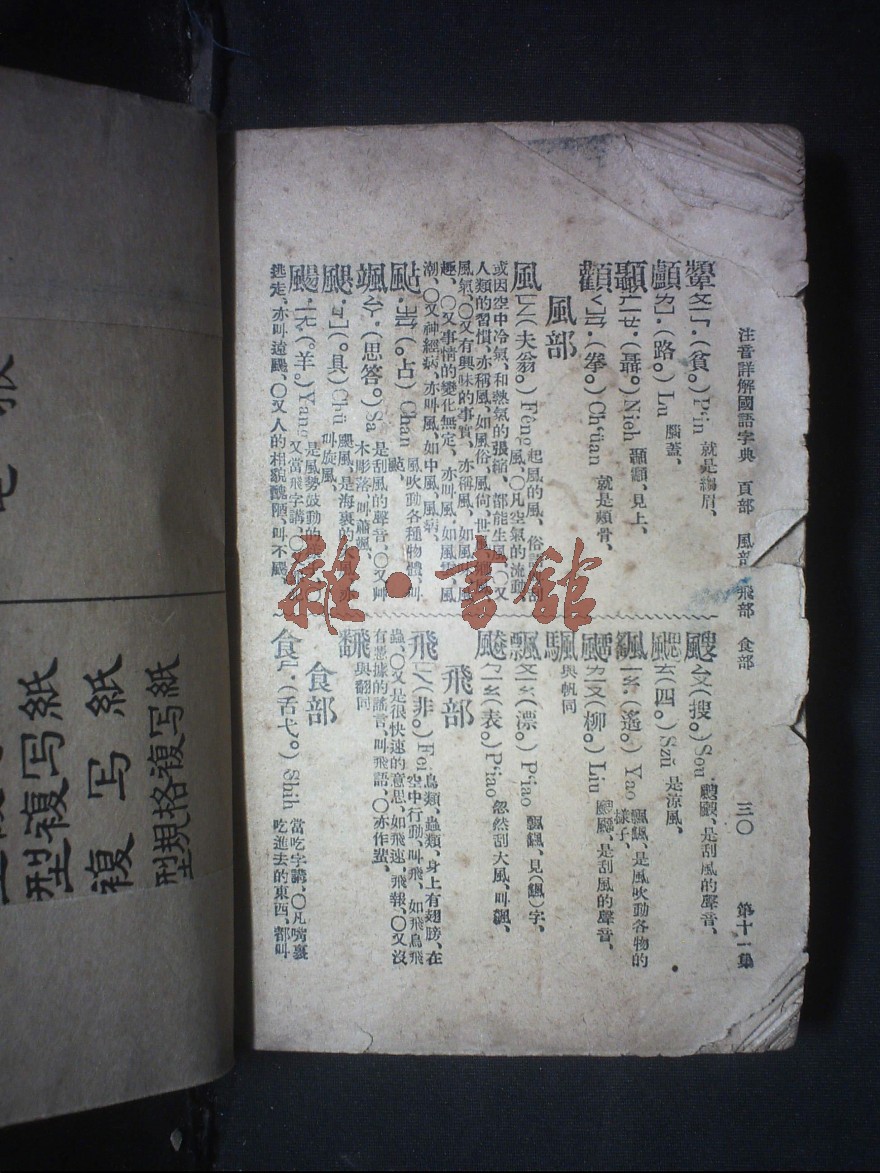 注音詳解國語字典 頁部 風部 飛部 食部 三〇 第十一集
顰 ㄆㄧㄣˊ(貧。) P'in 就是縐眉、
顱 ㄌㄨˊ(路。) Lu 腦蓋、
顳 ㄋㄧㄝ(聶。) Nieh 顳顬、見上、
顴 ㄑㄩㄢˊ(拳。) Ch'üan 就是頰骨、
風部
風 ㄈㄥ(夫翁。) Fêng 起風的風、
風、〇凡空氣的流動、
或因空中冷氣、和熱氣的張縮、都能生風、〇又
人類的習慣、亦稱風、如風俗、風尚、世風、
風氣、〇又有興味的事實、亦稱風、
趣、〇又事情的變化無定、亦叫風、如風雲、風
潮、〇又神經病、亦叫風、如中風、風病、
颭 (占。) Chan 風吹動各種物體、叫
颭、
颯 ㄙㄚˋ(思答。) Sa 是刮風的聲音、〇又艸
木彫落、叫蕭颯、
颶 ㄐㄩˋ(具。) Chü 颶風、是海裏的
叫旋風、
颺 ㄧㄤˊ(羊。) Yang 是風勢鼓動的
又當飛字講、〇
逃走、亦叫遠颺、〇又人的相貌醜陋、叫不颺、
颼 ㄙㄡ(搜。) Sou 颼颼、是刮風的聲音、
颸 ㄙ(四。) Szŭ 是涼風、
颻 ㄧㄠˊ(遙。) Yao 飄颻、是風吹動各物的
樣子、
飀 ㄌㄧㄡ(柳。) Liu 飀飀、是刮風的聲音、
颿 與帆同
飄 ㄆㄧㄠ(漂。) P'iao 飄颻、見(颻)字、
飈 ㄅㄧㄠ(表。) P'iao 忽然刮大風、叫飈、
飛部
飛 ㄈㄟ(非。) Fei 鳥類、蟲類、身上有翅膀、在
空中行動、叫飛、如飛鳥飛
蟲、〇又是很快速的意思、如飛速、飛報、〇又沒
有憑據的謠言、叫飛語、〇亦作蜚、
飜 與翻同
食部
食 ㄕˊ(舌弋。) Shih 當吃字講、〇凡嘴裏
吃進去的東西、都叫
雜·書館
型複写紙
複写紙
型規格複写紙